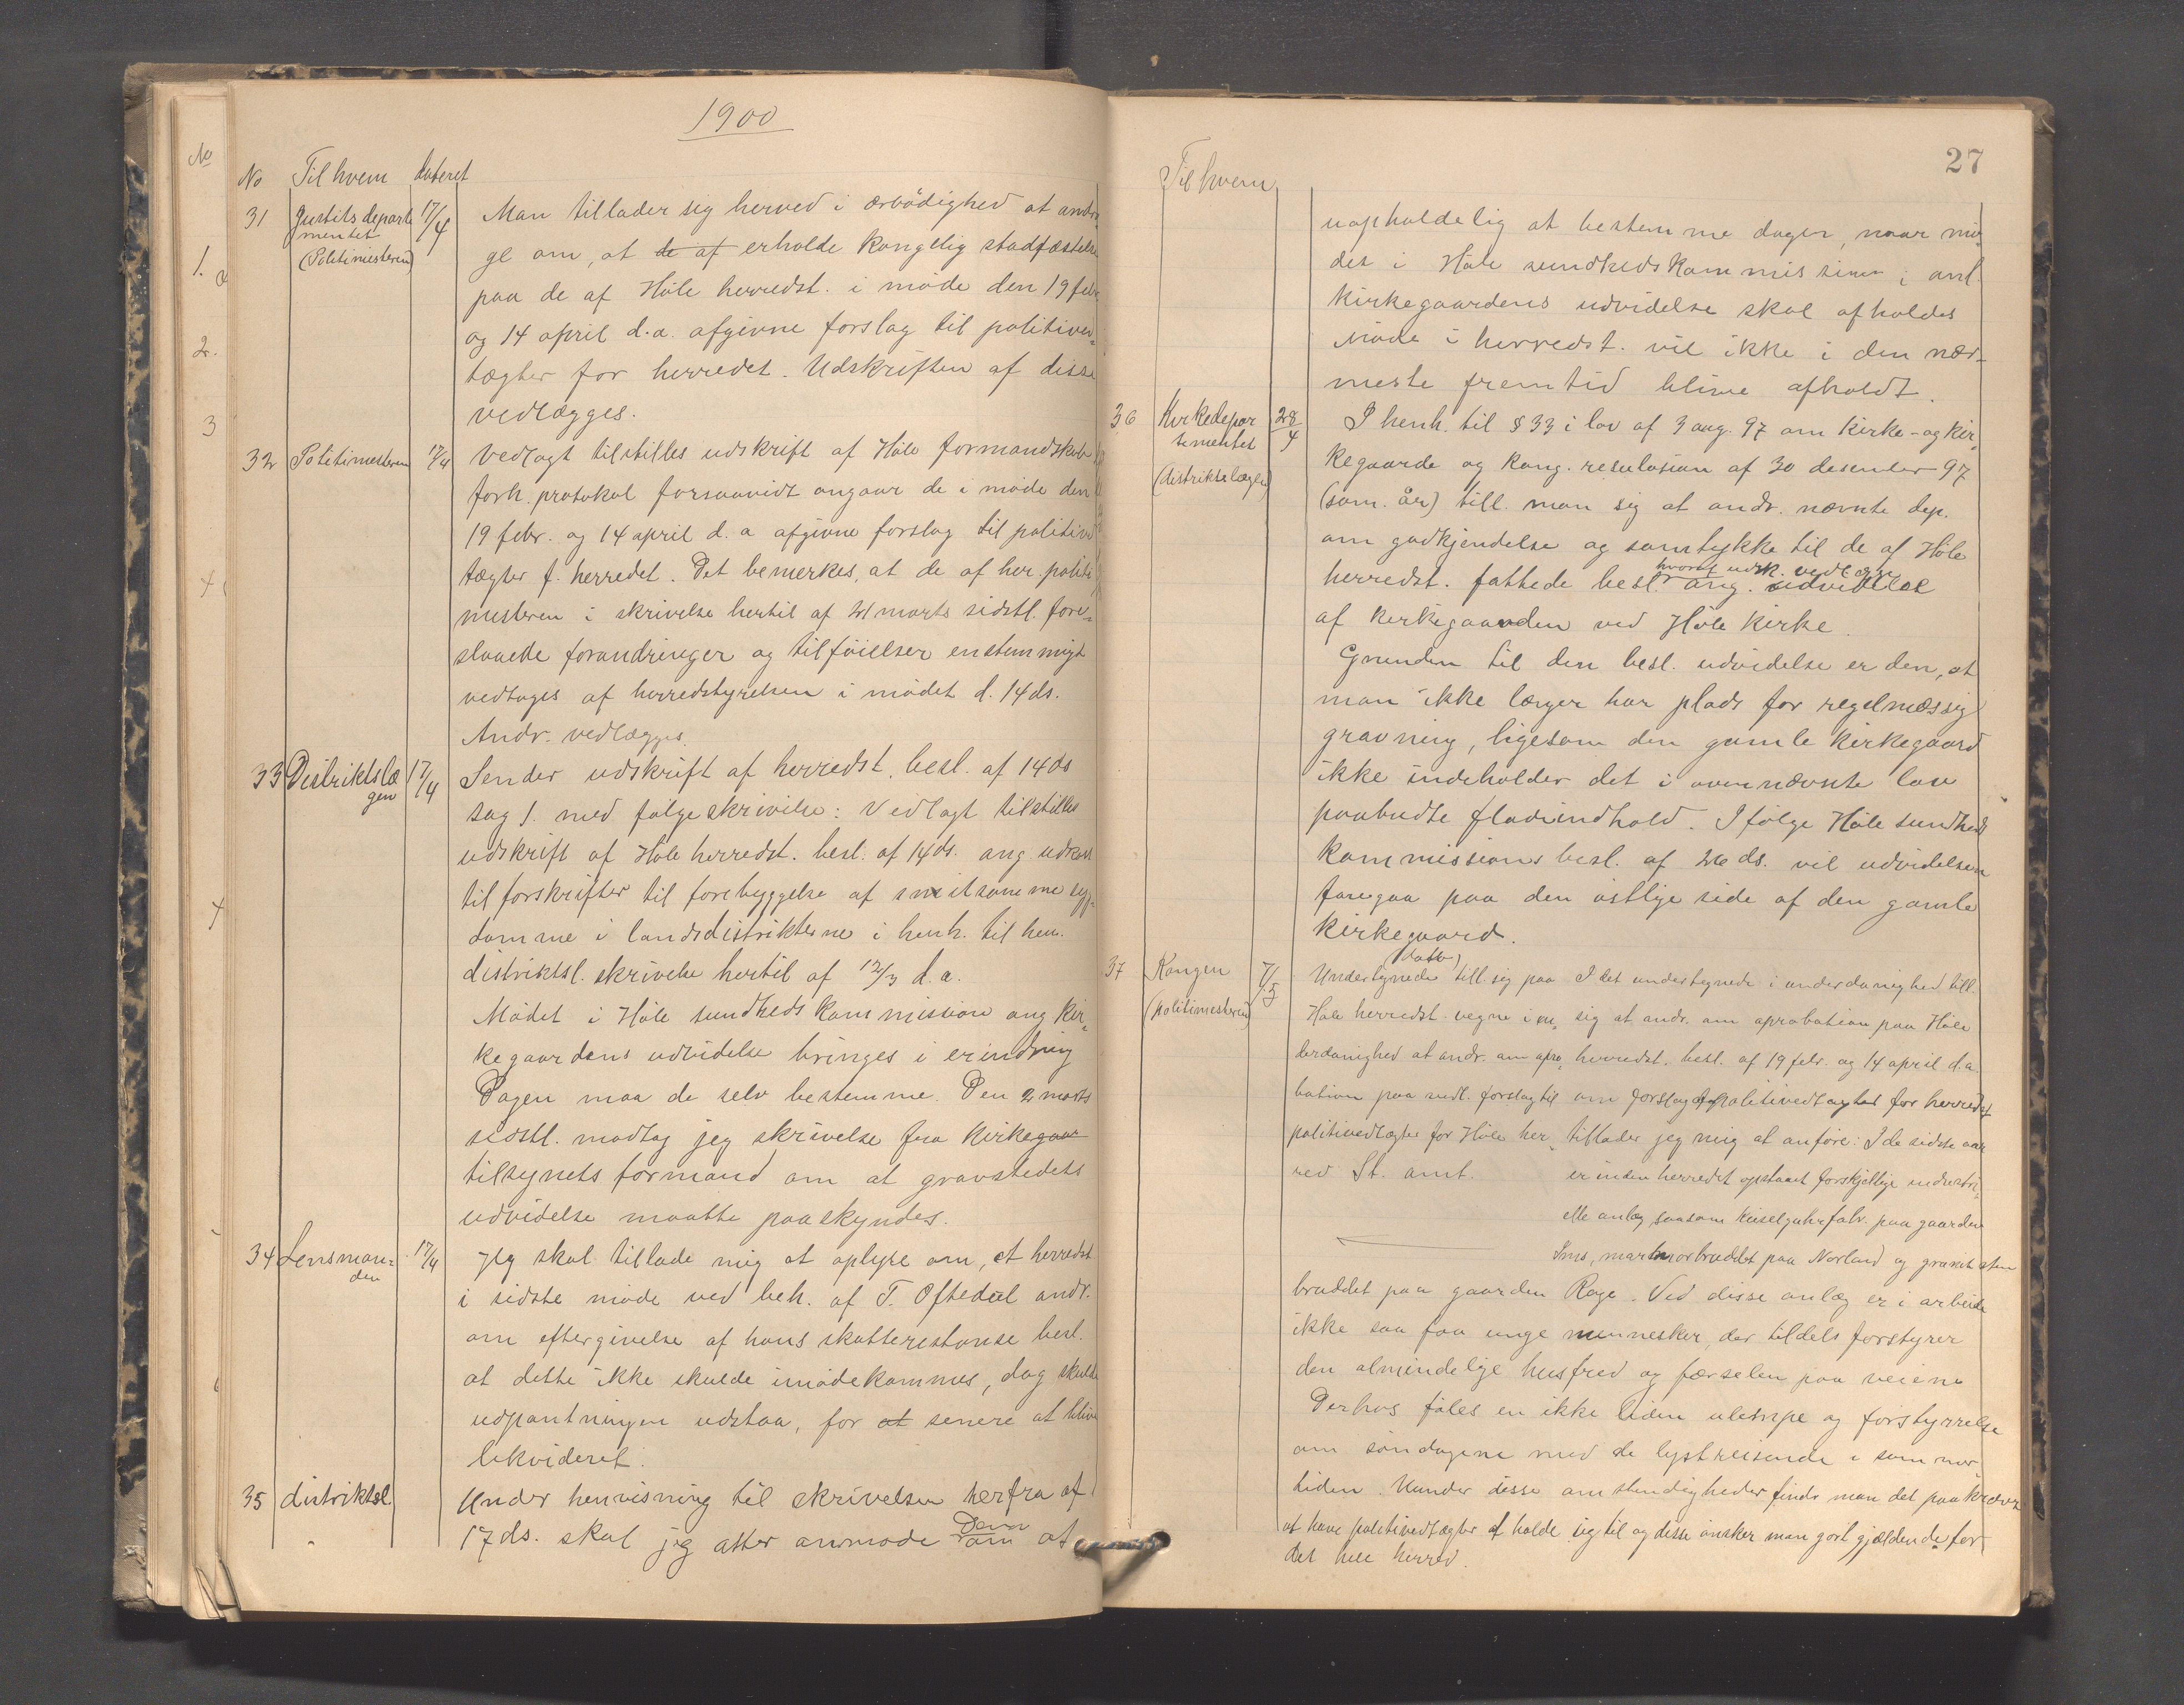 1900
No Til hvem dateret
31 Justitsdeparte 17/4 Man tillader sig herved i ærbödighed at andra-
mentet
(Politimesteren) ge om, at de af erholde kongelig stadfæstelse
paa de af Höle herredst. i möde den 19 febr.
og 14 april d.a. afgivne forslag til politived-
tægter for herredet. Udskriften af disse
vedlægges.
32 Politimesteren 17/4 Vedlagt tilstilles udskrift af Höle formandskabs
forh. protokol forsaavidt angaar de i möde den
19 febr. og 14 april d. a afgivne forslag til politived
tægter f. herredet. Det bemerkes, at de af her. politi
mesteren i skrivelse hertil af 21 marts sidstl. fore-
slaaede forandringer og tilföielser enstemmigt
vedtoges af herredstyrelsen i mödet d. 14 ds.
Andr. vedlægges.
33 Distriktslæ 17/4 Sender udskrift af herredst. besl. af 14 ds
gen
sag 1. med fölgeskrivelse: Vedlagt tilstilles
udskrift af Höle herredst. besl. af 14 ds. ang. udkast
til forskrifter til forebyggelse af smitsomme syg-
domme i landsdistrikterne i henh. til hen.
distriktsl. skrivelse hertil af 12/3 d.a.
Mödet i Höle sundhedskommission ang kir-
kegaardens udvidelse bringes i erindring
Dagen maa de selv bestemme. Den 2 marts
sidstl. modtog jeg skrivelse fra Kirkegaar
tilsynets formand om at gravstedets
udvidelse maatte paaskyndes.
34 Lensman- 17/4 Jeg skal tillade mig at oplyse om, at herredst.
den
i sidste möde ved beh. af T. Oftedal andr.
om eftergivelse af hans skatterestanse besl.
at dette ikke skulde imödekommes, dog skulde
udpantningen udstaa, for at senere at blive
likvideret.
35 distriktsl. Under henvisning til skrivelsen herfra af
17 ds. skal jeg atter anmode Dem om at
27
Til hvem
uopholdelig at bestemme dagen, naar mö-
det i Höle sundhedskommission i anl.
Kirkegaardens udvidelse skal afholdes
Möde i herredst. vil ikke i den nær-
meste fremtid blive afholdt.
36 Kirkedepar 28/4 I henh. til § 33 i lov af 3 aug. 97 om Kirke- og kir-
tementet
kegaarde og kong. resulusion af 30 desember 97
(distriktslægen) (som. år) till. man sig at andr. nævnte dep.
om godkjendelse og samtykke til de af Höle
hvoraf udsk. vedlægges
herredst. fattede besl. ang. udvidelse
af kirkegaarden ved Höle Kirke.
Grunden til den besl. udvidelse er den, at
man ikke længer har plads for regelmæssig
gravning, ligesom den gamle Kirkegaard
ikke indeholder det i ovennævnte lov
paabudte fladeindhold. Ifölge Höle sundheds
kommissions besl. af 26 ds. vil udvidelsen
foregaa paa den östlige side af den gamle
Kirkegaard.
37 Kongen 7/5 Undertegnede till. sig paa
(politimesteren) Höle herredst. vegne i un-
derdanighed at andr. om apro-
bation paa vedl. forslag til
politivedtægter for Höle her-
red St. amt.
I det undertegnede i underdanighed till.
sig at andr. om aprobation paa Höle
herredst. besl. af 19 febr. og 14 april d.a.
om forslag af politivedtægter for herredet
tillader jeg mig at anföre: I de sidste aar
er inden herredet opstaaet forskjellige industri-
elle anlæg saasom kiselguhrfabr. paa gaarden
Ims, marmorbruddet paa Norland og granitsten
bruddet paa gaarden Rage. Ved disse anlæg er i arbeide
ikke saa faa unge mennesker, der tildels forstyrer
den almindelige husfred og færselen paa veiene
Derhos föles en ikke liden ulempe og forstyrrelse
om söndagene med de lystreisende i sommer-
tiden. Under disse omstendigheder finds man det paakrævet
at have politivedtægter at holde sig til og disse önsker man gort gjældende for
det hele herred.